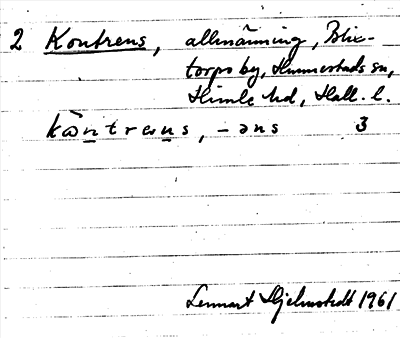 2 Kontrens, allmänning, Blix-
torps by, Hunnestads sn,
Himle hd, Hall. l.
kὼn̲trəu̲s, -əns 3
Lennart Hjelmstedt 1961